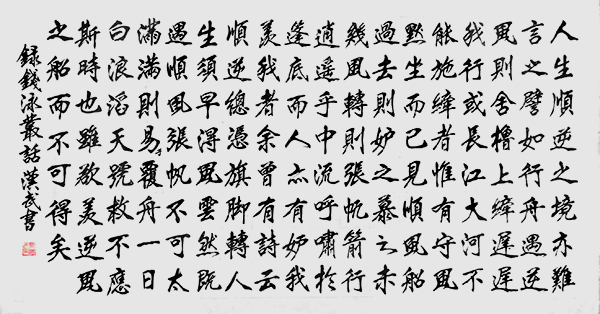 人生順逆之境亦難
言之譬如行舟遇逆
風則舍櫓上縴遲遲
我行或長江大河不
能施縴者惟有守風
默坐而已見順風船
過去則妒之慕之未
幾風轉則張帆箭行
逍遥乎中流呼嘯於
篷底而人亦有妒我
羨我者余曾有詩云
順逆總憑旗脚轉人
生須早得風雲然既
遇順風張帆不可太
滿滿則易覆舟一日
白浪滔天號救不應
斯時也雖欲羨逆風
之船而不可得矣
録錢泳叢話漢武書